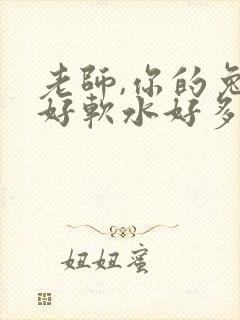 老師,你的兔
好軟水好多
妞妞蜜